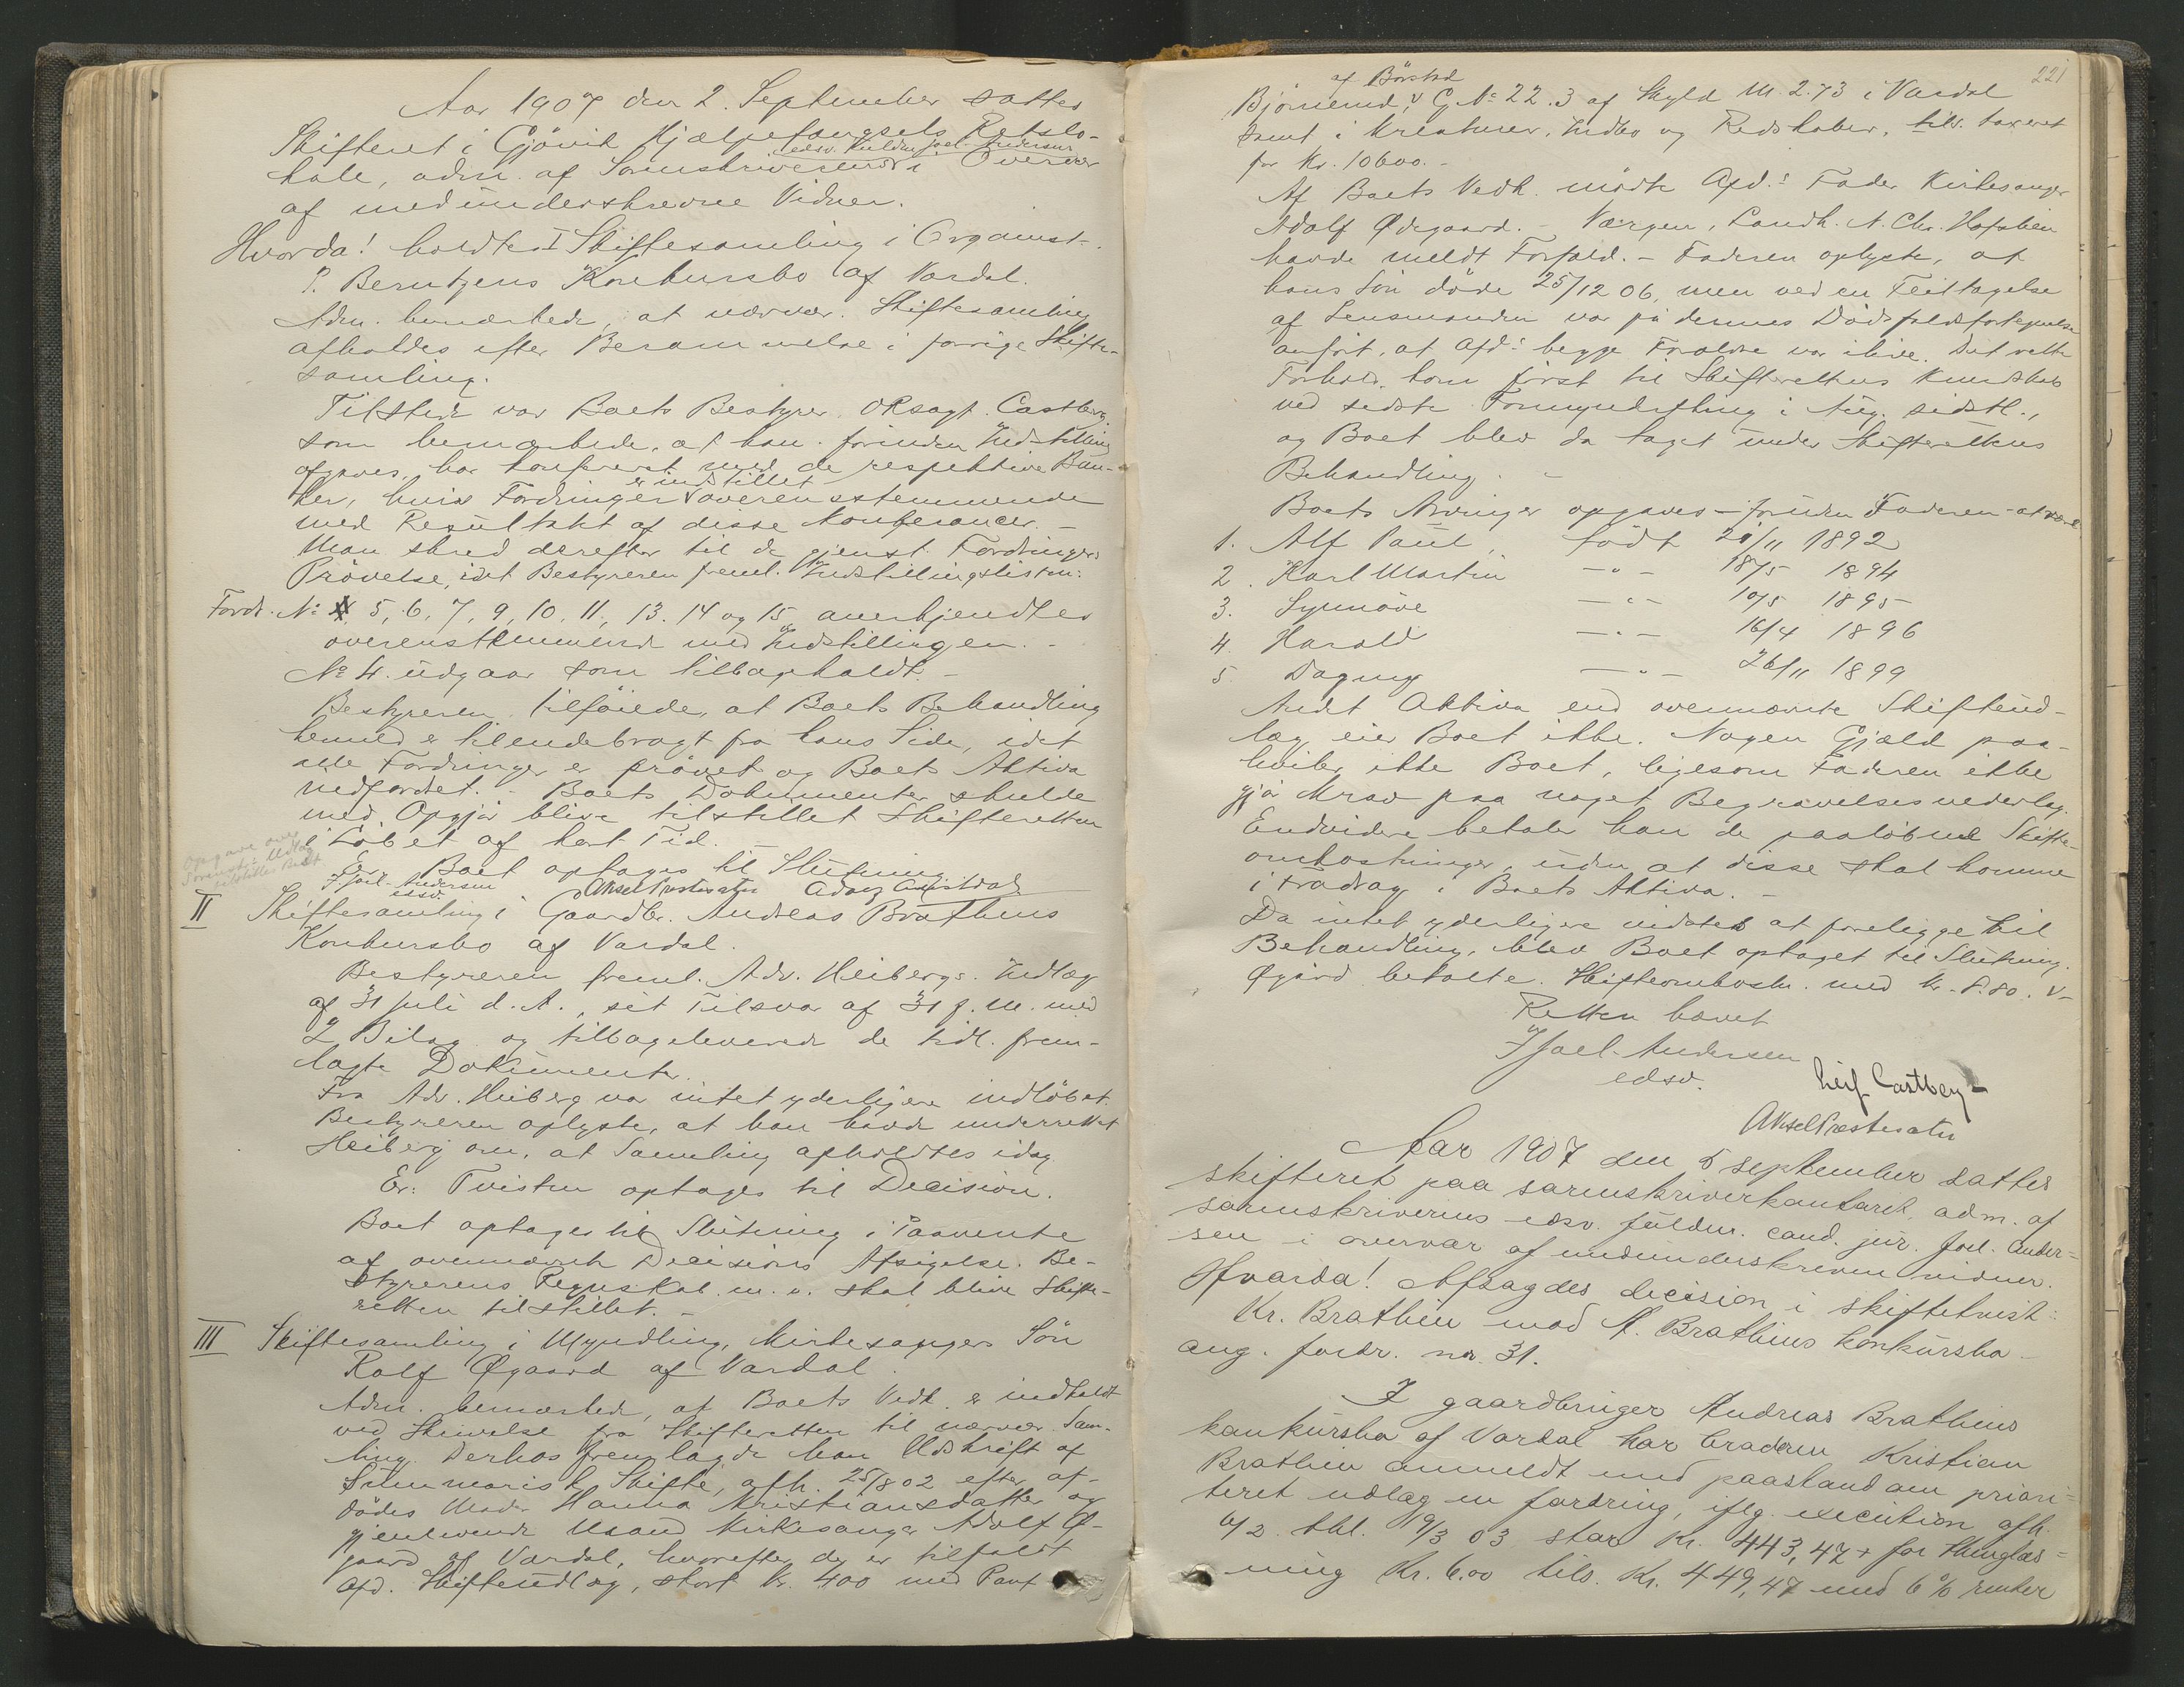 Aar 1907 den 2. September sattes
Skifteret i Gjövik Hjælpefængsels Retslo-
edsv. Fuldm. Joel-Andersen
kale, adm. af Sorenskriverens i Overvær
af medunderskrevne Vidner.
Hvorda! holdtes I Skiftesamling i Organist
P. Berntzens Konkursbo af Vardal.
Adm. bemærkede, at nærvær. Skiftesamling
afholdes efter Berammelse i forrige Skifte-
samling.
Tilstede var Boets Bestyrer ORsagf. Castberg,
som bemærkede, at han, forinden Indstilling
afgaves, har konfereret med de respektive Ban-
er indstillet
ker, hvis Fordringer overensstemmende
med Resultatet af disse Konferancer. -
Man skred derefter til de gjenst. Fordringers
Prövelse, idet Bestyreren freml. Indstillingslisten:
Fordr. No 5, 6, 7, 9, 10, 11, 13. 14 og 15 anerkjendtes
overenstemmende med Indstillingen. -
No 4. udgaar som tilbagekaldt. -
Bestyreren tilföiede, at Boets Behandling
hermed er tilendebragt fra hans Side, idet
alle Fordringer er prövet og Boets Aktiva
- Boets Dokumenter skulde
med Opgjör blive tilstillet Skifteretten
i Löbet af kort Tid. -
Opgave over
Er. Boet optages til Slutning
Joel-Andersen
edsv.
II Skiftesamling i Gaardbr. Andreas Brathens
Konkursbo af Vardal.
Bestyreren freml. Adv. Heibergs Indlæg
af 31 Juli d. A., sit Tilsvar af 31 f. M. med
2 Bilag og tilbageleverede de tidl. frem-
lagte Dokumenter.
Fra Adv. Heiberg var intet yderligere indlöbet.
Bestyreren oplyste, at han havde underrettet
Heiberg om, at Samling afholdtes idag
Er: Tvisten optages til Decision.
Boet optages til Slutning i Paavente
af ovennævnte Decisions Afsigelse. Be-
styrerens Regnskab m. v. skal blive Skifte-
retten tilstillet. -
III Skiftesamling i Myndling, Kirkesanger Sön
Rolf Øgaard af Vardal.
Adm. bemærkede, at Boets Vedk. er indkaldt
ved Skrivelse fra Skifteretten til nærvær. Sam-
ling. Derhos fremlagde han Udskrift af
Summarisk Skifte, afh. 25/8 02 efter af-
dödes Moder Hanna Kristiansdatter og
gjenlevende Mand Kirkesanger Adolf Ø-
gaard af Vardal, hvorefter der er tilfaldt
Afd. Skifteudlæg, stort Kr. 400 med Pant
221
af Börstad
Björnerud, G. No 22.3 af Skyld M. 2.73 i Vardal
samt i Kreaturer, Indbo og Redskaber, tils. taxeret
for Kr. 10600.-
Af Boets Vedk. mödte Afd.s Fader Kirkesanger
Adolf Ødegaard. - Værgen, Landh. N. Chr.
havde meldt Forfald. - Faderen oplyste, at
hans Sön döde 25/12 06, men ved en Feiltagelse
af Lensmanden var på dennes Dödsfaldsfortegnelse
anfört, at Afd.s begge Forældre var ilive. Det rette
Forhold kom först til Skifterettens Kundskab
ved sidste Formynderting i Aug. sidstl.,
og Boet blev da taget under Skifterettens
Behandling. -
Boets Arvinger opgaves - foruden Faderen - at være
1. Alf Paul, födt 21/11 1892
2. Karl Martin - " - 18/5 1894
3. Synnöve - " - 10/5 1895
4. Harald - " - 16/4 1896
5 Dagny - " - 26/11 1899
Andet Aktiva end ovennævnte Skifteud-
læg eier Boet ikke. Nogen Gjæld paa-
hviler ikke Boet, ligesom Faderen ikke
gjör Krav paa noget Begravelsesvederlag.
Endvidere betaler han de paalöbne Skifte-
omkostninger, uden at disse skal komme
i Fradrag i Boets Aktiva. -
Da intet yderligere vidstes at foreligge til
Behandling, blev Boet optaget til Slutning.
Øgård betalte Skifteomkostn. med Kr. 8.80.
Retten hævet
Joel-Andersen
edsv.
Leif Castberg
Aksel Præstesæter
Aar 1907 den 5 september sattes
skifteret paa sorenskriverkontoret, adm. af
sorenskriverens edsv. fuldm. cand. jur. Joel. Ander=
sen i overvær af medunderskrevne vidner.
Hvorda! Afsagdes decision i skiftetvist:
Kr. Brathen mod A. Brathens konkursbo
ang. fordr. nr. 31.
I gaardbruger Andreas Brathens
konkursbo af Vardal har broderen Kristian
Brathen anmeldt med paastand om priori=
teret udlæg en fordring, iflg. execution afh.
6/2 thl. 19/3 03 stor Kr. 443,47 + for
ning Kr. 6.00 tils. Kr. 449,47 med 6% renter